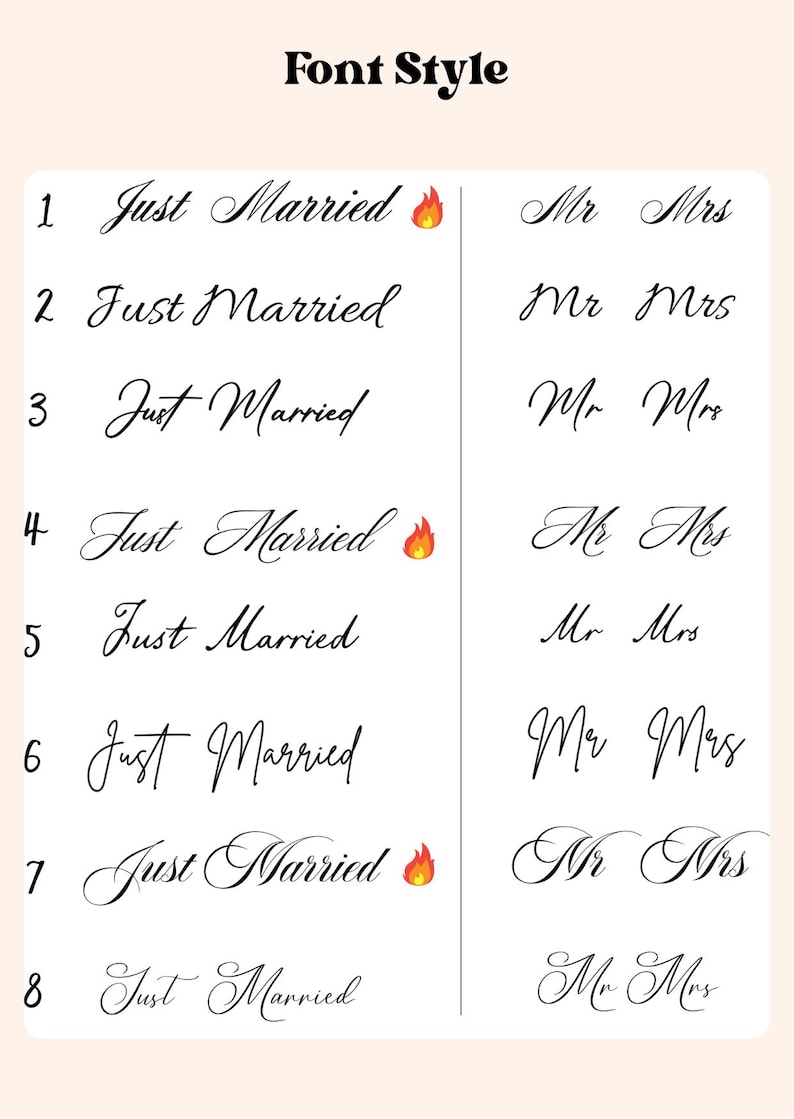 Font Style
1 Just Married 🔥 Mr Mrs
2 Just Married Mr Mrs
3 Just Married Mr Mrs
4 Just Married 🔥 Mr Mrs
5 Just Married Mr Mrs
6 Just Married Mr Mrs
7 Just Married 🔥 Mr Mrs
8 Just Married Mr Mrs